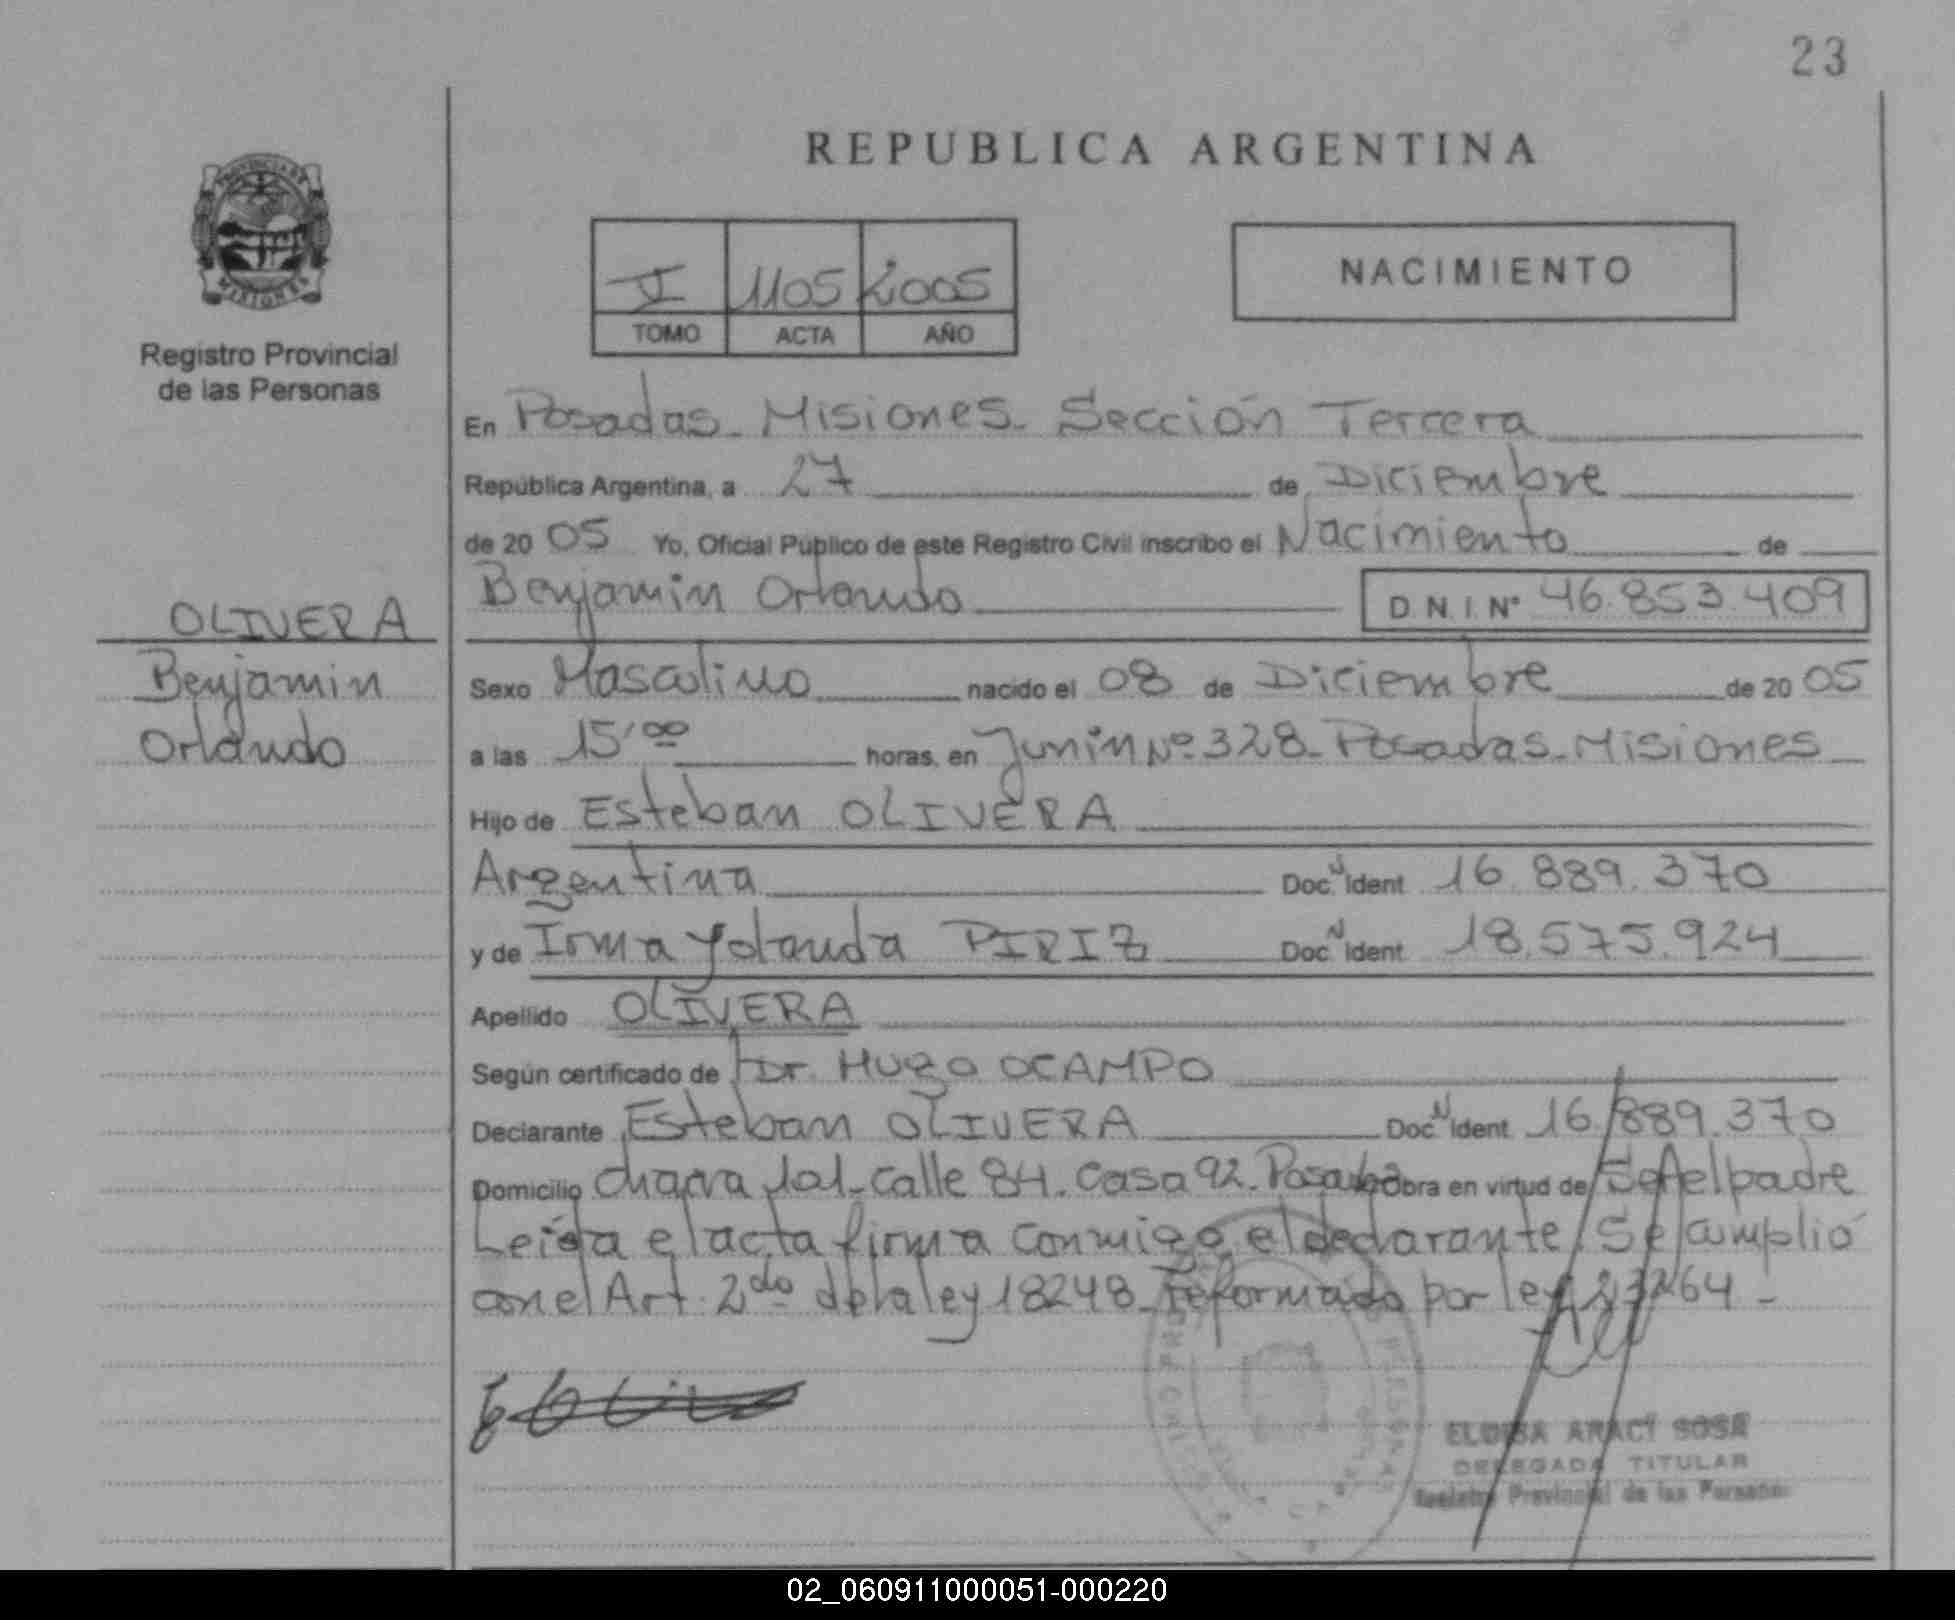 23
PROVINCIA DE
MISIONES
Registro Provincial
de las Personas
REPUBLICA ARGENTINA
V 1105 2005
TOMO ACTA AÑO
NACIMIENTO
En Posadas - Misiones - Sección Tercera
República Argentina, a 27 de Diciembre
de 20 05 Yo, Oficial Público de este Registro Civil inscribo el Nacimiento de
Benjamin Orlando D.N.I. Nº 46.853.409
OLIVERA
Benjamin
Orlando
Sexo Masculino nacido el 08 de Diciembre de 20 05
a las 15'00 horas, en Junin Nº 328 - Posadas - Misiones
Hijo de Esteban OLIVERA
Argentina Doc. N Ident 16.889.370
y de Irma Yolanda PIRIZ Doc. N Ident 18.575.924
Apellido OLIVERA
Según certificado de Dr. Hugo OCAMPO
Declarante Esteban OLIVERA Doc. N Ident 16.889.370
Domicilio chacra 101 - calle 84. Casa 92. Posadas Obra en virtud de Ser el padre
Leida el acta firma conmigo el declarante. Se cumplió
con el Art. 2do de la ley 18248 - reformado por ley 23264 -
ELOISA ARACI SOSA
DELEGADA TITULAR
Registro Provincial de las Personas
02_060911000051-000220